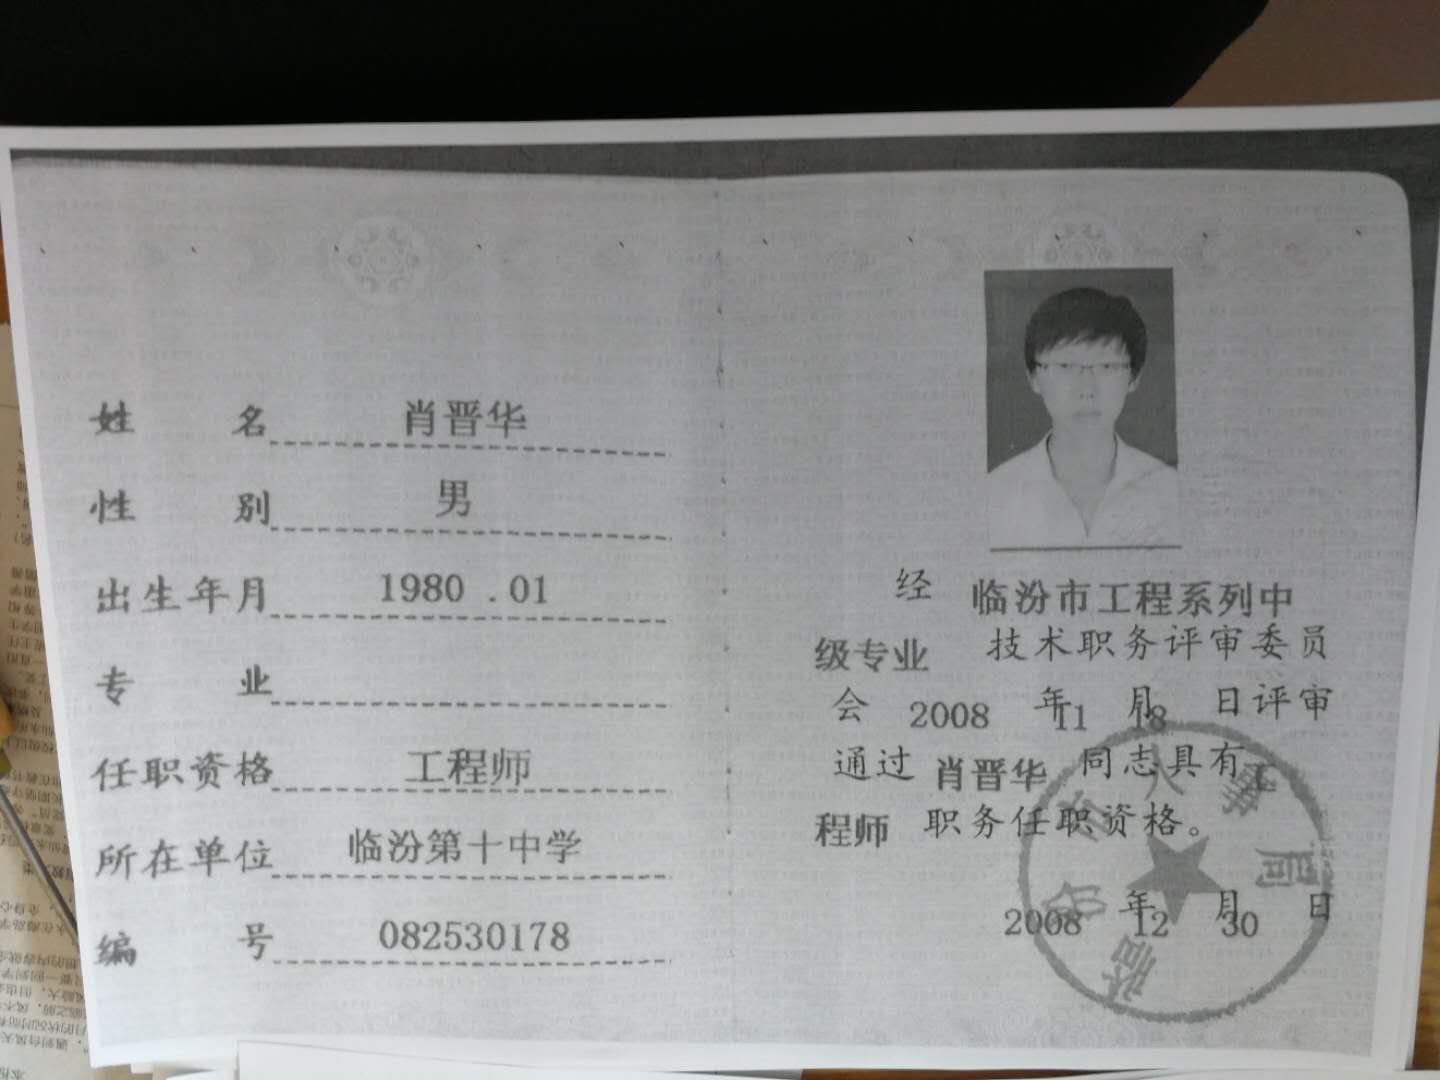 姓名 肖晋华
性别 男
出生年月 1980.01
专业
任职资格 工程师
所在单位 临汾第十中学
编号 082530178
经 临汾市工程系列中
级专业 技术职务评审委员
会 2008 年 11 月 18 日评审
通过 肖晋华 同志具有工
程师 职务任职资格。
2008 年 12 月 30 日
临汾市人事局